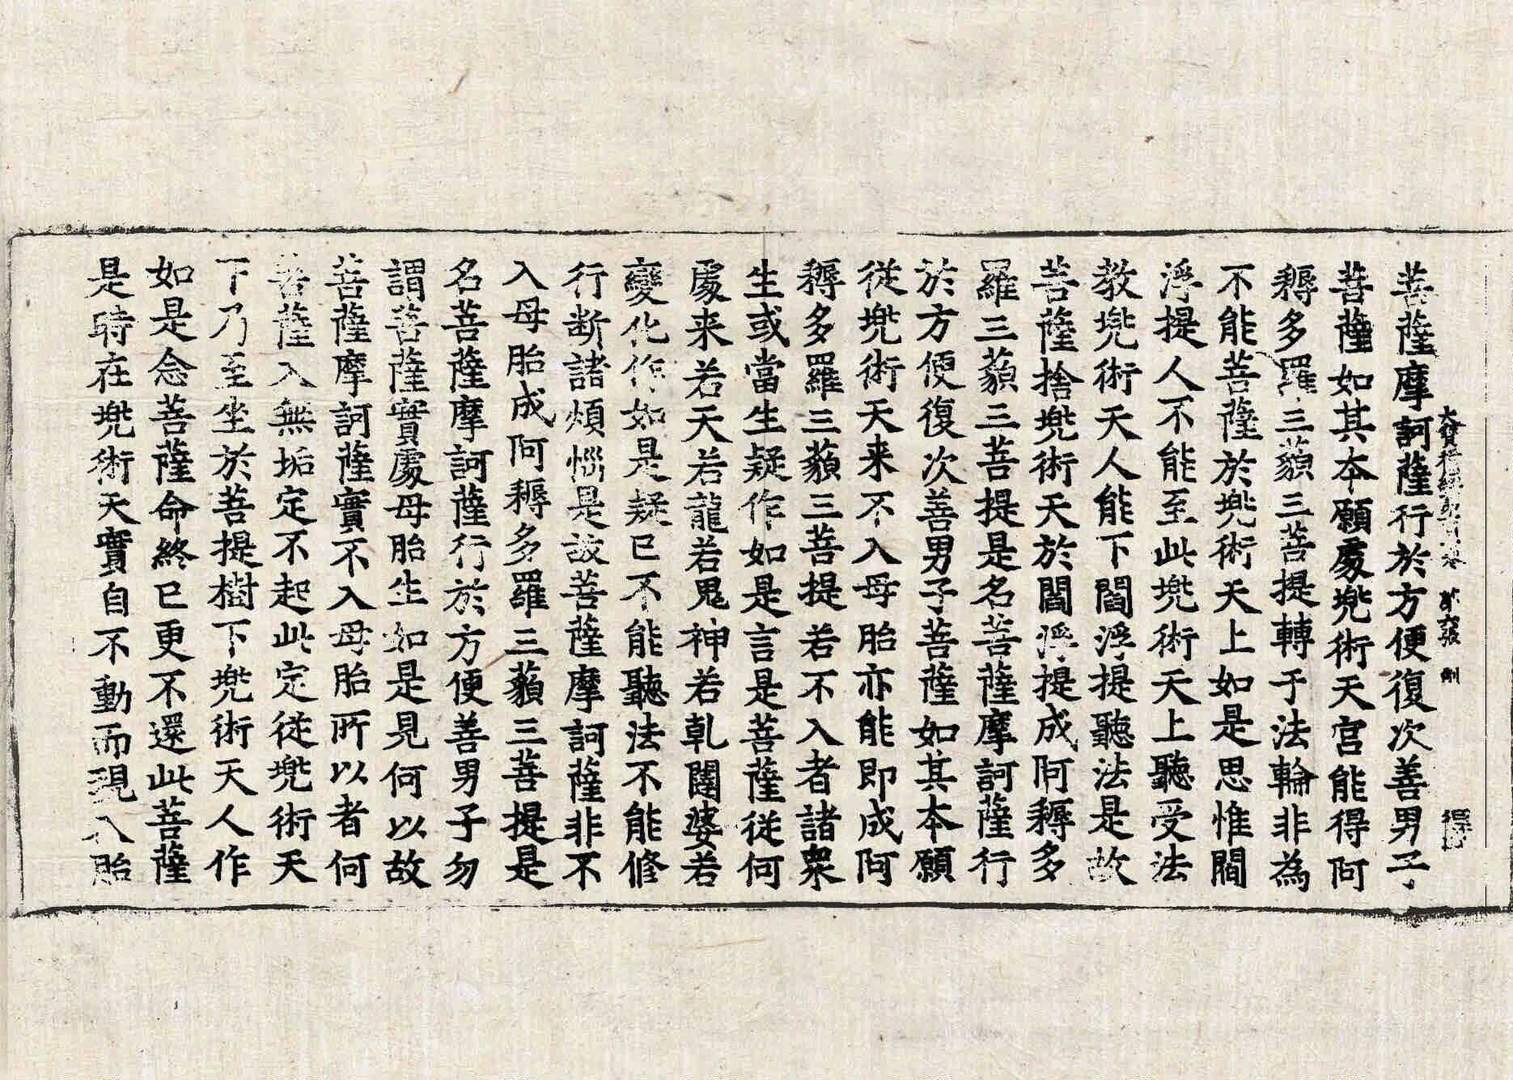 大寶積經 卷 第六張 刻
菩薩摩訶薩行於方便復次善男子
菩薩如其本願處兠術天宫能得阿
耨多羅三藐三菩提轉于法輪非為
不能菩薩於兠術天上如是思惟閻
浮提人不能至此兠術天上聽受法
教兠術天人能下閻浮提聽法是故
菩薩捨兠術天於閻浮提成阿耨多
羅三藐三菩提是名菩薩摩訶薩行
於方便復次善男子菩薩如其本願
從兠術天来不入母胎亦能即成阿
耨多羅三藐三菩提若不入者諸衆
生或當生疑作如是言是菩薩從何
處来若天若龍若鬼神若乹闥婆若
變化作如是疑已不能聽法不能修
行断諸煩惱是故菩薩摩訶薩非不
入母胎成阿耨多羅三藐三菩提是
名菩薩摩訶薩行於方便善男子勿
謂菩薩實處母胎生如是見何以故
菩薩摩訶薩實不入母胎所以者何
菩薩入無垢定不起此定從兠術天
下乃至坐於菩提樹下兠術天人作
如是念菩薩命終已更不還此菩薩
是時在兠術天實自不動而現入胎